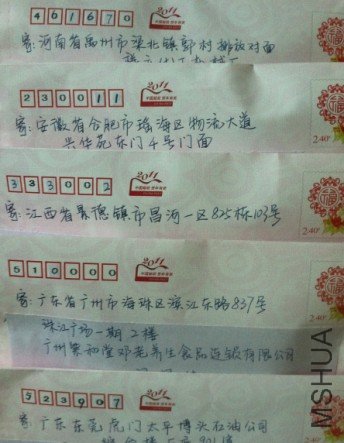 461670
2011
寄:河南省禹州市梁北镇郭村
对面
230011
2011
中国邮政 贺年有奖
寄:安徽省合肥市瑶海区物流大道
兴华苑东门4号门面
2.40
333002
2011
中国邮政 贺年有奖
寄:江西省景德镇市昌河一区825栋103号
2.40
510000
2011
中国邮政 贺年有奖
寄:广东省广州市海珠区滨江东路837号
珠江广场一期2楼
广州
堂邓老养生食品连锁有限公司
2.40
523907
2011
寄:广东东莞虎门太平博头石油公司
MSHUA